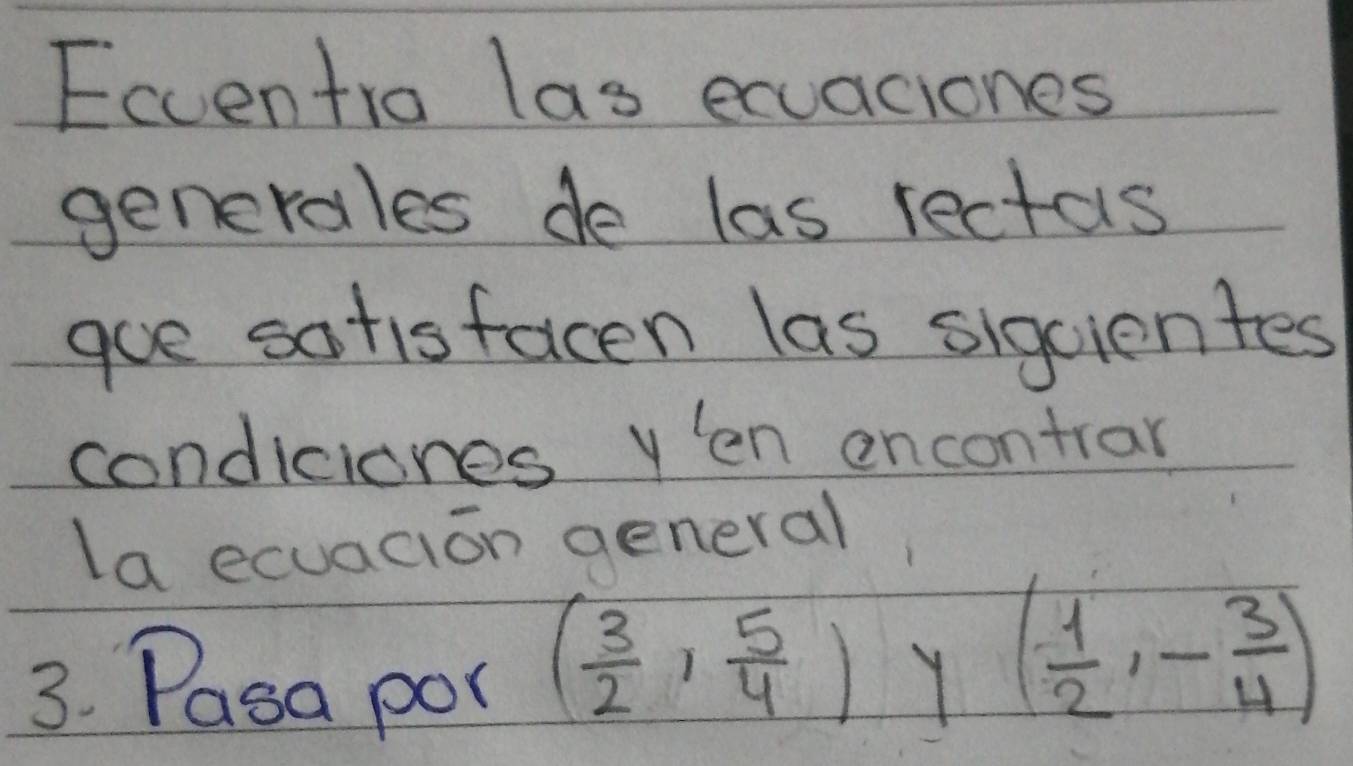 Ecuentra las ecuaciones
generales de las rectas
que satisfacen las siguientes
condiciones y en encontrar
la ecuación general,
3. Pasa por (3/2, 5/4) y (1/2, -3/4)